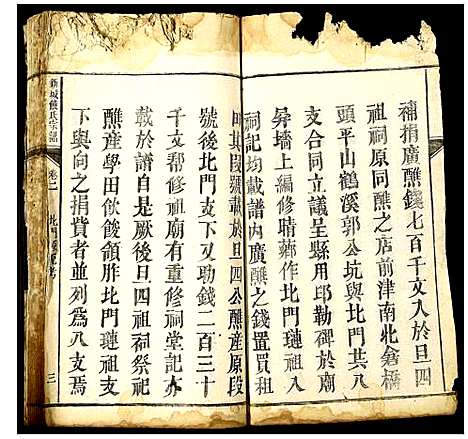 補捐廣醮錢七百千文入於旦四
祖祠原同醮之店前津南北倉橋
頭平山鶴溪郭公坑與北門共八
支合同立議呈縣用邱勒碑於廟
旲墻上編修晴薌作北門璉祖支
祠記均載譜內廣醮之錢置買租
田其段號載於旦四公醮產原段
號後北門支下又助錢二百三十
千文幫修祖廟有重修祠堂記亦
載於譜自是厥後旦四祖祠祭祀
醮產學田飲餕領胙北門璉祖支
下與向之捐貲者並列為八支焉
新城饒氏宗譜
卷二
北門
三